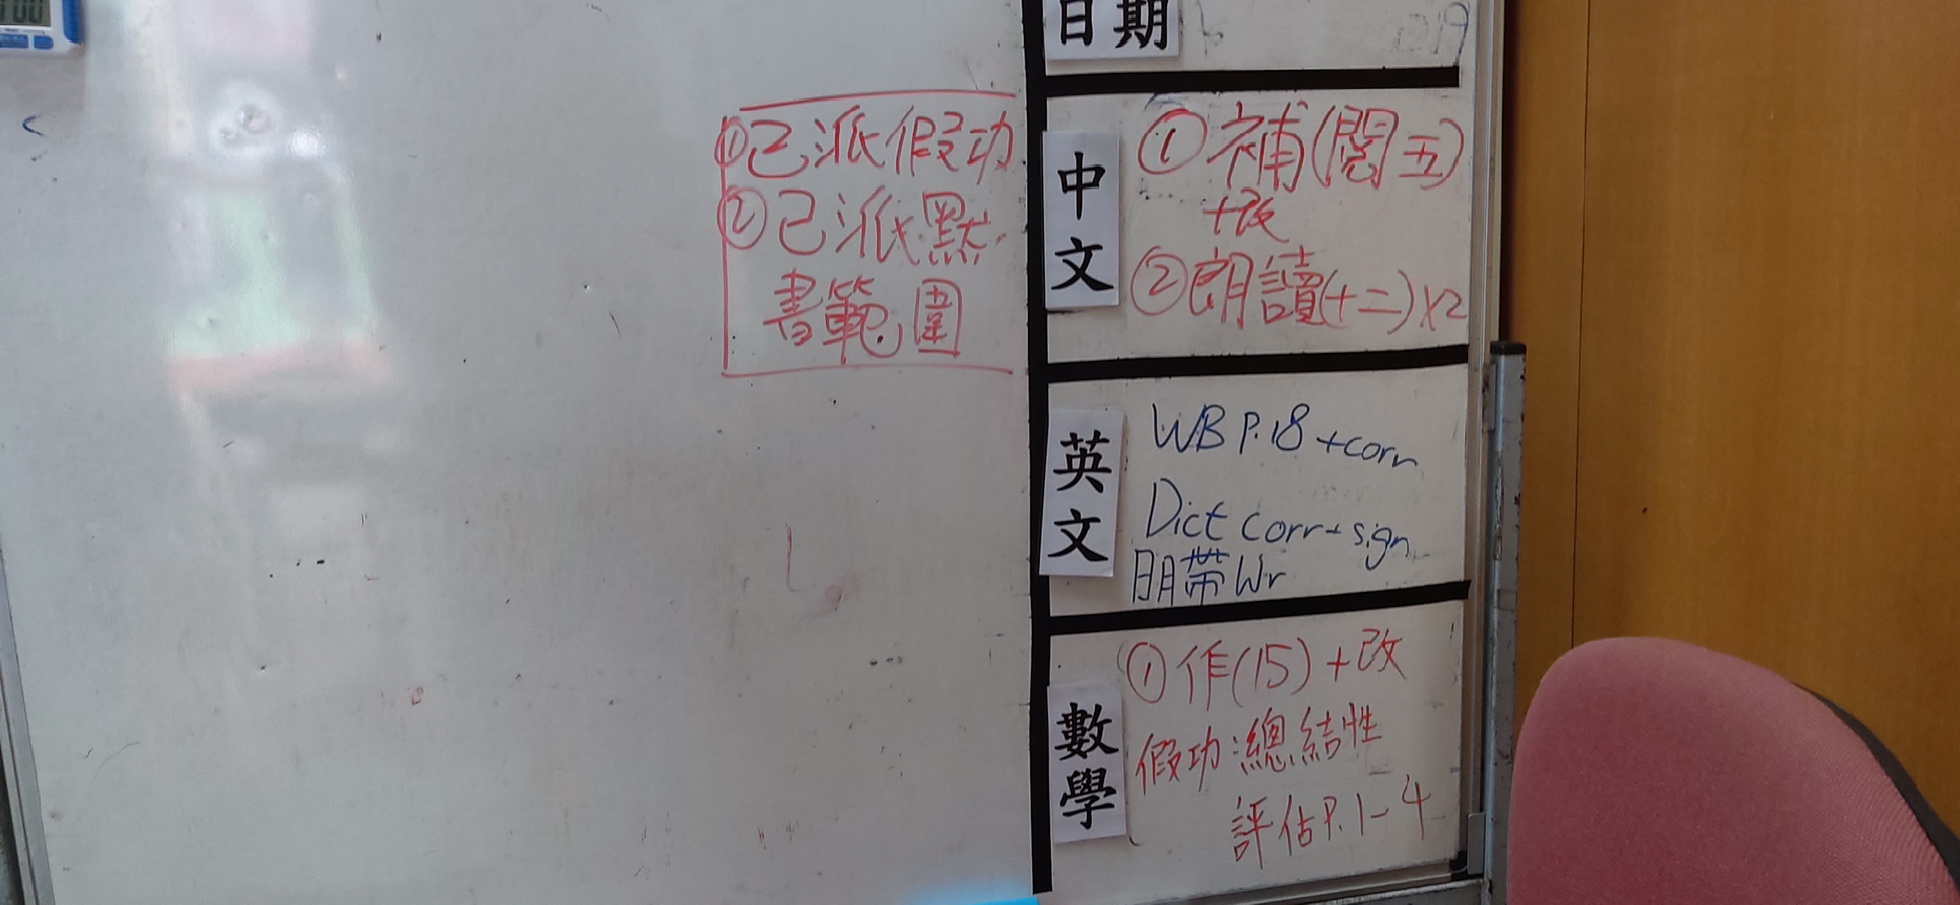 日期
①已派假功
②已派默
書範圍
中文
①補(閱五)
+改
②朗讀(十二)x2
英文
WB P.18 +corr
Dict corr + sign
明帶Wr
數學
①作(15)+改
假功:總結性
評估P.1-4